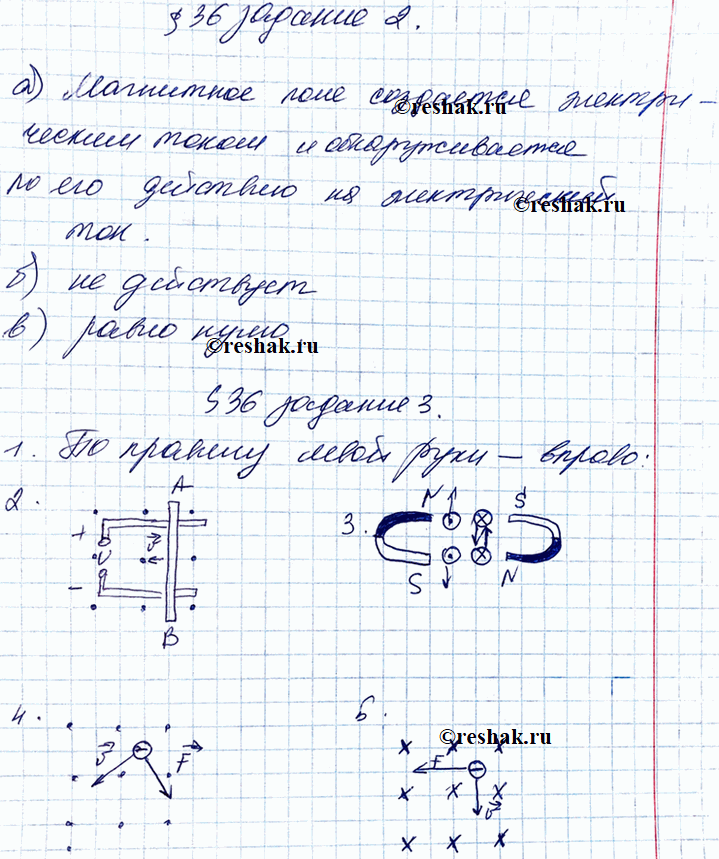 § 36 задание 2.
а) Магнитное поле создается электри-
©reshak.ru
ческим током и обнаруживается
по его действию на электрический
©reshak.ru
ток.
б) не действует
в) равно нулю
©reshak.ru
§ 36 задание 3.
1. По правилу левой руки – вправо.
2. A
+ U - v
B
3. N S
S N
4. v - F
5.
©reshak.ru
x x x
F -
x x x v
x x x